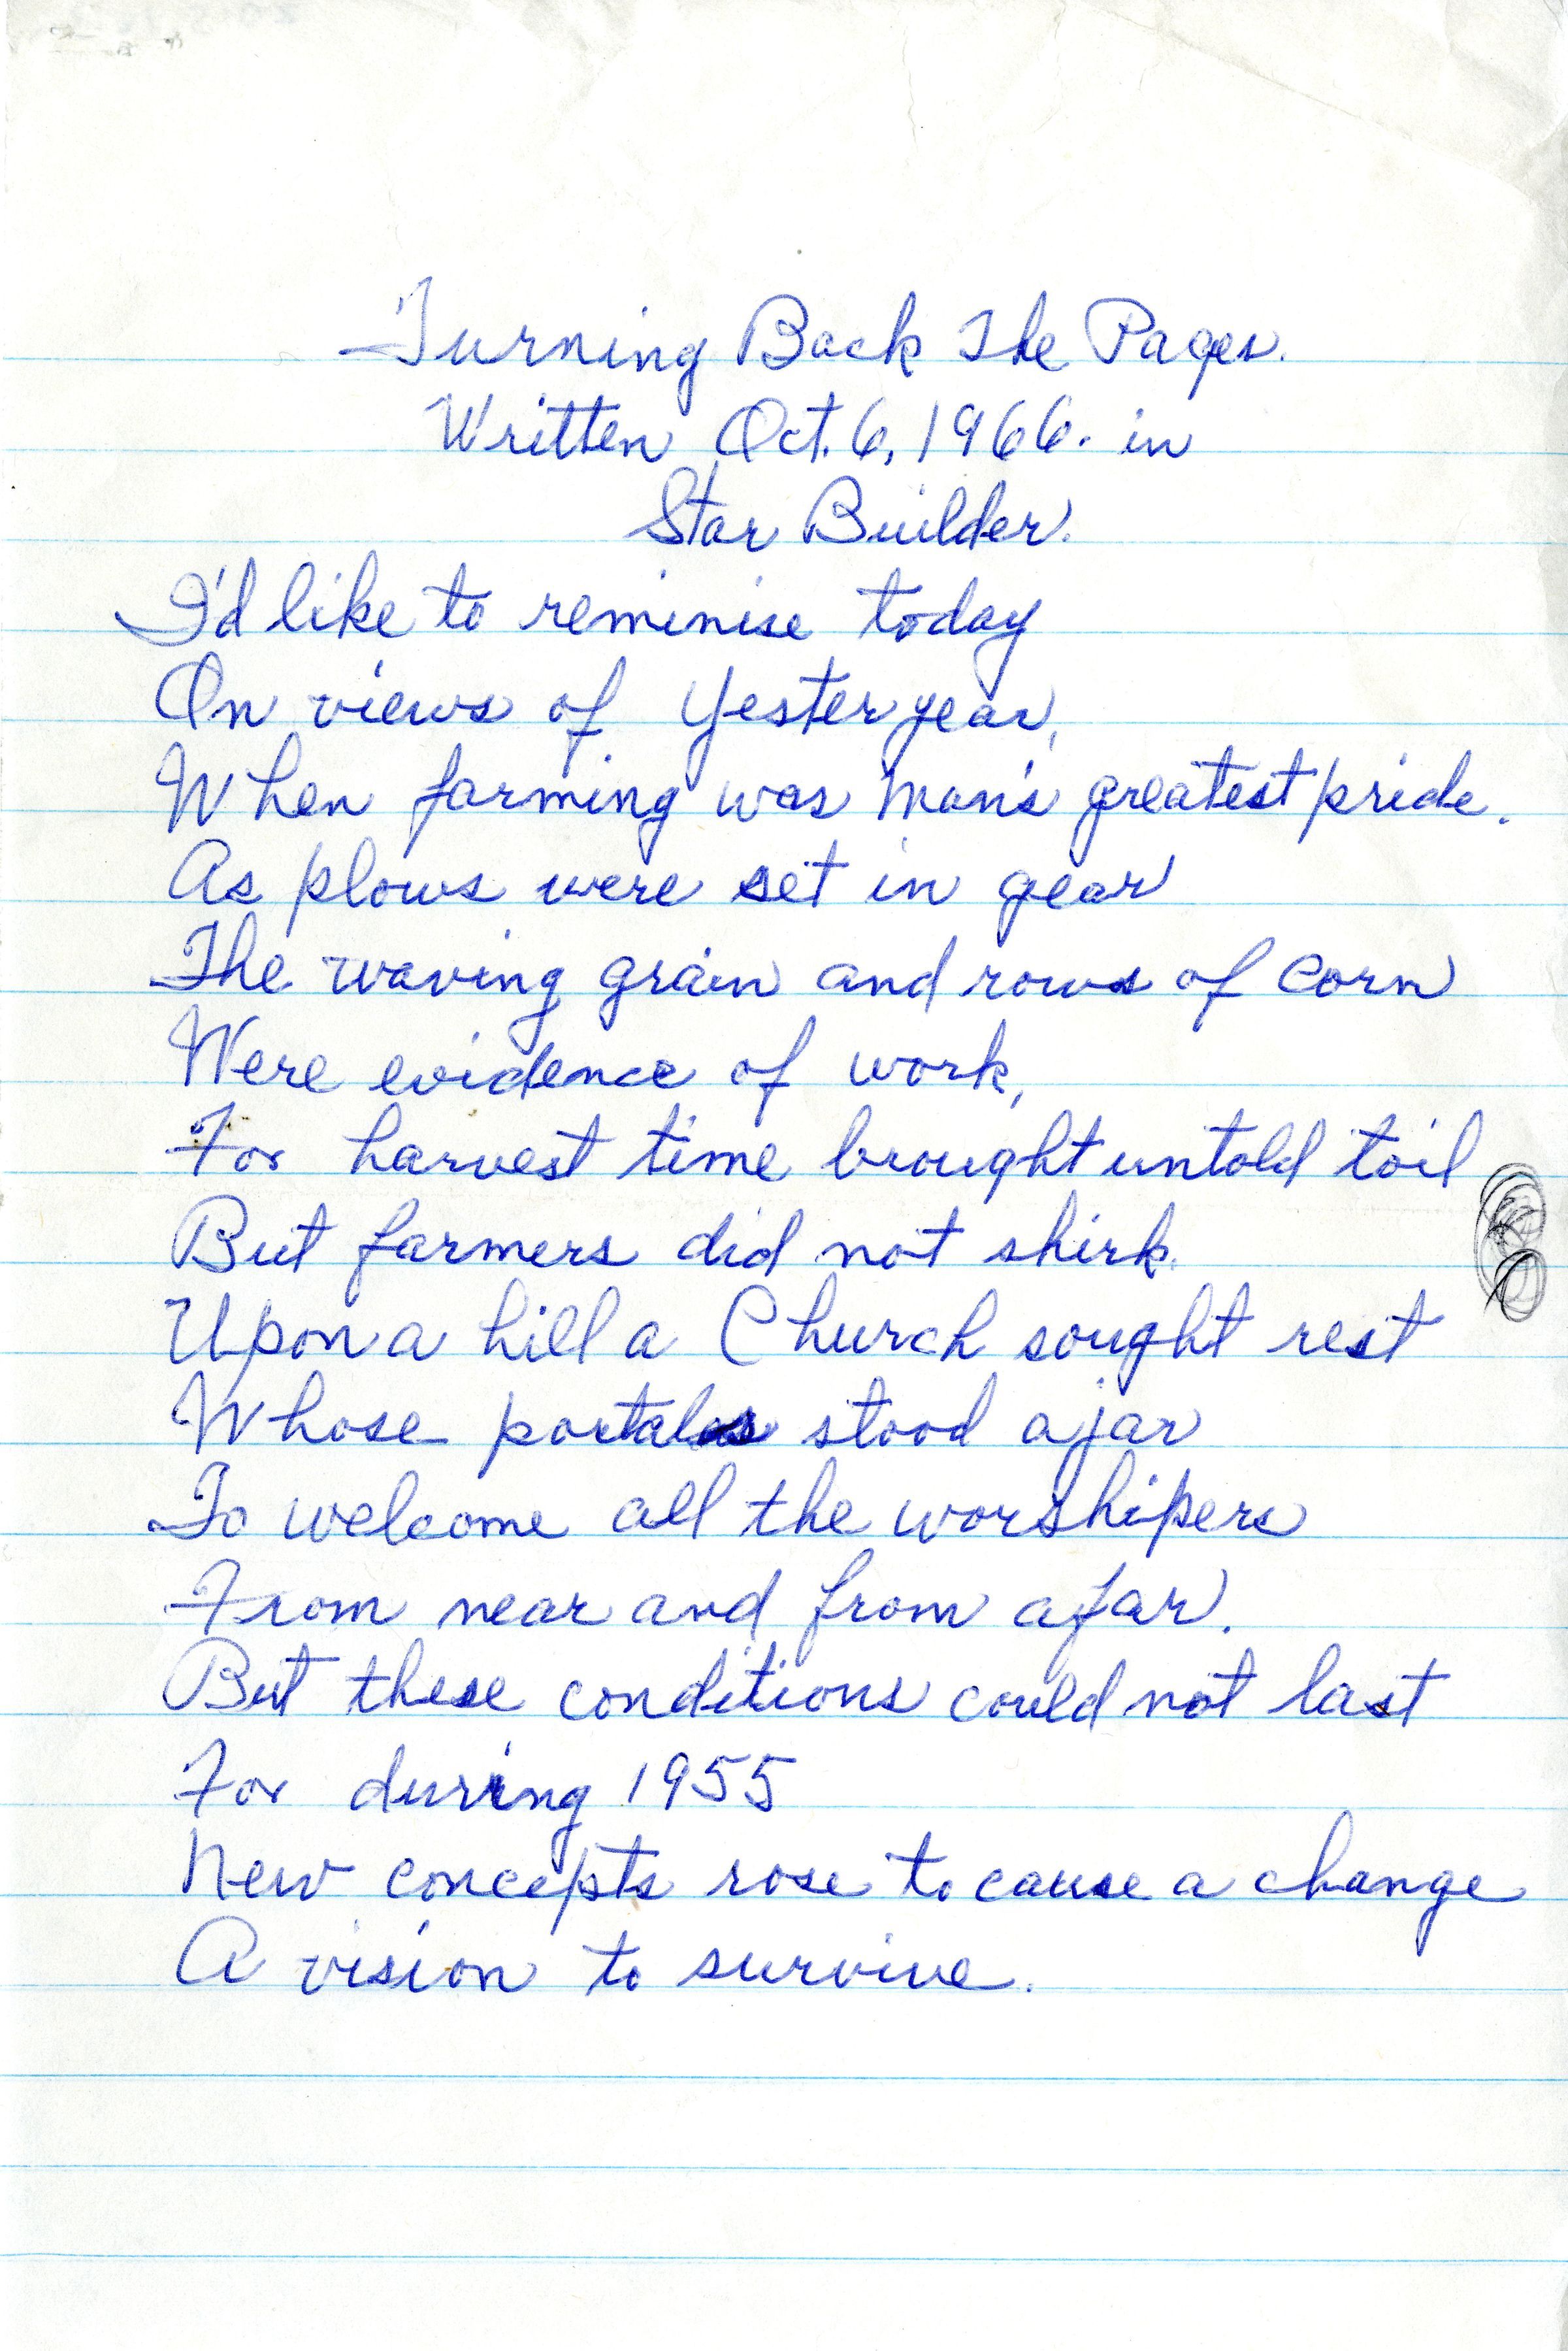 Turning Back The Pages.
Written Oct. 6, 1966. in
Star Builder.
I'd like to reminise today
On views of Yester year,
When farming was man's greatest pride.
As plows were set in gear
The waving grain and rows of corn
Were evidence of work,
For harvest time brought untold toil
But farmers did not shirk.
Upon a hill a Church sought rest
Whose portals stood ajar
To welcome all the worshipers
From near and from afar.
But these conditions could not last
For during 1955
New concepts rose to cause a change
A vision to survive.